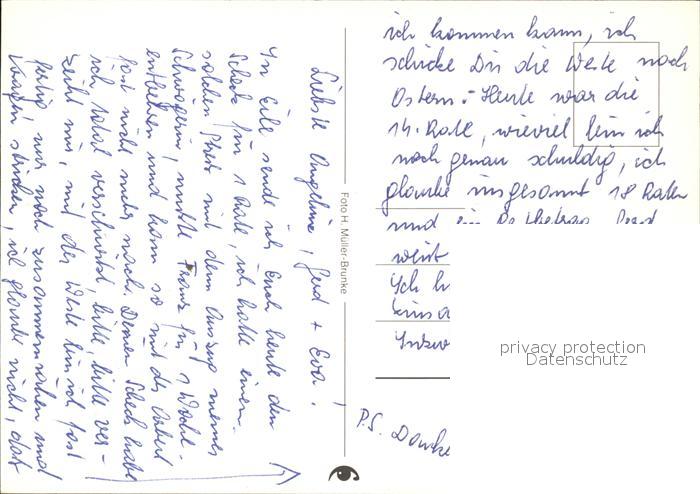 Liebste Angelina, Gerd + Eva!
In Eile sende ich Euch heute den
Scheck für 1 Rate, ich hatte einen
solchen Streß mit dem Auszug meiner
Schwägerin, mußte Franz für 1 Woche
entbehren und kam so mit der Arbeit
fast nicht mehr nach. Deinen Scheck habe
ich total verschwitzt, bitte, bitte ver-
zeiht mir, mit der Weste bin ich fast
fertig, nur noch zusammennähen und
stricken, ich glaube nicht, daß
ich kommen kann, ich
schicke Dir die Weste nach
Ostern. Heute war die
14. Rate, wieviel bin ich
noch genau schuldig, ich
glaube insgesamt 18 Raten
und
Ich
P.S. Danke
Foto H. Müller-Brunke
privacy protection
Datenschutz